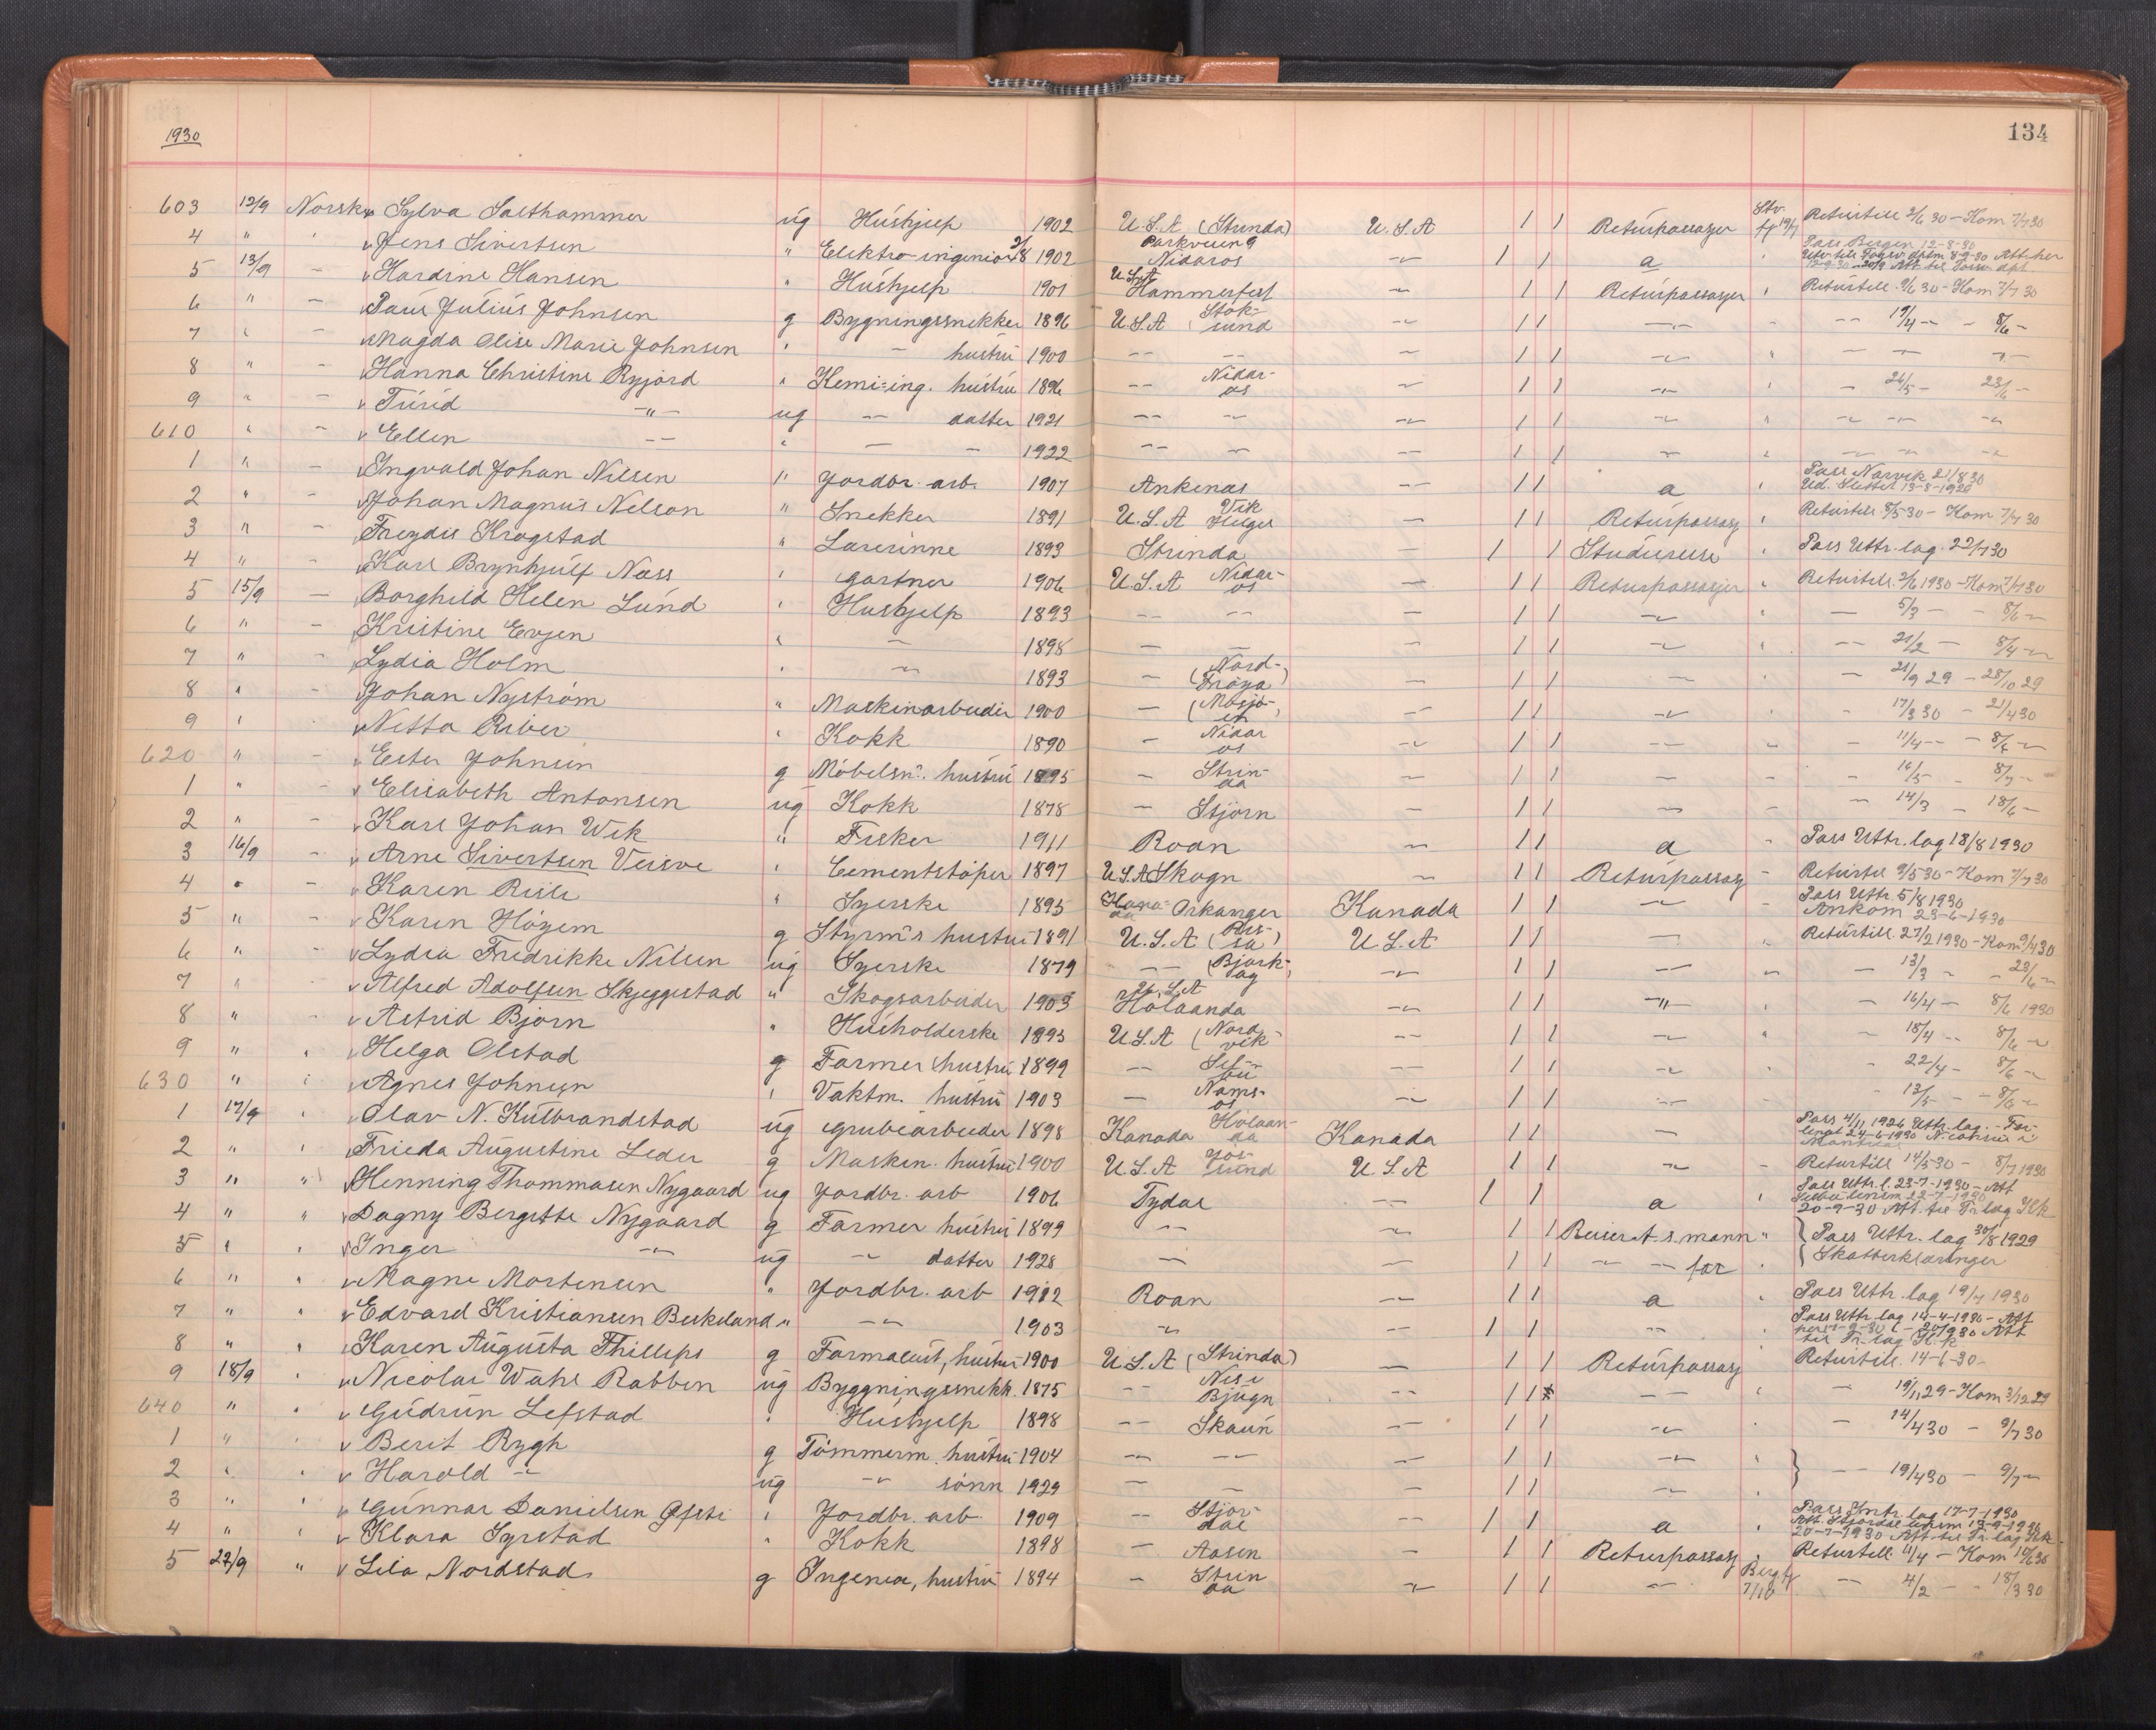 1930
134
603 12/9 Norsk Sylva Salthammer ug Hushjelp 1902 U.S.A (Strinda) U.S.A 1 1 Returpassasjer Returtill 2/6 30 - Kom 7/7 30
4 " Jens Sivertsen " Elektro-ingeniør 1902 Parkveien 9 Nidaros -"- 1 1 a Pass Bergen 12-8-30
5 13/9 - Hardine Hansen " Hushjelp 1901 U.S.A Hammerfest -"- 1 1 Returpassasjer Returtill. 9/6 30 - Kom 7/7 30
6 " - Paul Julius Johnsen g Bygningssnekker 1896 U.S.A Stoksund -"- 1 1 -"- - 19/4 - - 8/6 -
7 " - Magda Elise Marie Johnsen " - hustru 1900 - - - 1 1 -"- - - -
8 " - Hanna Christine Ryjord " Kemi-ing. hustru 1896 - Nidaros - 1 1 -"- - 26/5 - 23/6 -
9 " - Turid -"- ug - datter 1921 - - - 1 1 -"- - - -
610 " - Ellen - " - - 1922 - - - 1 1 - - - -
1 " - Ingvald Johan Nilsen " Jordbr. arb. 1907 Ankenas - 1 1 a Pass Narvik 21/8 30
2 " - Johan Magnus Nelson " Snekker 1891 U.S.A Vik Helgel - 1 1 Returpassasj Returtill. 8/5 30 - Kom 7/7 30
3 " - Freydis Krogstad " Lærerinne 1893 Strinda - 1 1 Studiereise Pass Uttr. lag. 22/7 30
4 " - Karl Brynhjulf Næss " Gartner 1906 U.S.A Nidaros - 1 1 Returpassasjer Returtill. 2/6 1930 - Kom 7/7 30
5 15/9 - Borghild Helen Lund " Hushjelp 1893 - - - 1 1 - - 5/3 - - 8/6 -
6 " - Kristine Evjen " - 1898 - - - 1 1 - - 21/2 - 8/4 -
7 " - Lydia Holm " - 1893 - (Nord-Frøya) - 1 1 - - 21/9 29 - 28/10 29
8 " - Johan Nystrøm " Maskinarbeider 1900 - (Mosjøen) - 1 1 - - 17/3 30 - 21/4 30
9 " Netta Riber " Kokk 1890 - Nidaros - 1 1 - - 11/4 - - 8/6 -
620 " - Ester Johnsen g Møbelsn. hustru 1895 - Strinda - 1 1 - - 16/5 - 8/7 -
1 " - Elisabeth Antonsen ug Kokk 1878 - Stjørn - 1 1 - - 14/3 - 18/6 -
2 " - Karl Johan Wik " Fisker 1911 Roan - 1 1 a Pass Uttr. lag 18/8 1930
3 16/9 - Arne Sivertsen Veisve " Cementstøper 1897 U.S.A Skogn - 1 1 Returpassasj Returtill 9/5 30 - Kom 7/7 30
4 " - Karen Risli " Syerske 1895 Kanada Orkanger Kanada 1 1 - Pass Uttr 5/8 1930 Ankom 23-6-1930
5 " - Karen Høgem g Styrm's hustru 1891 U.S.A (Rissa) U.S.A 1 1 - Returtill. 27/2 1930 - Kom 9/4 30
6 " - Lydia Fredrikke Nilsen ug Syerske 1879 - (Bjørkøy) - 1 1 - - 13/3 - - 23/6 -
7 " Alfred Adolfsen Skjeggestad " Skogsarbeider 1903 U.S.A Hølaanda - 1 1 -"- - 16/4 - 8/6 1930
8 " - Astrid Bjørn " Husholderske 1893 U.S.A (Nordvik - 1 1 - - 18/4 - 8/6 -
9 " Helga Olstad g Farmer hustru 1899 - Selbu - 1 1 - - 22/4 - 8/6 -
630 " Agnes Johnsen " Vaktm. hustru 1903 - Namsos - 1 1 - - 13/5 - - 8/6 -
1 17/9 Olav N. Kulbrandstad ug Grubearbeider 1898 Kanada Hølaanda Kanada 1 1 - Pass 4/11 1926 Uttr. lag.
2 " Frieda Augustine Leder g Maskin. hustru 1900 U.S.A Jøssund U.S.A 1 1 - - Returtill 14/5 30 - 8/7 1930
3 " " Henning Thommasen Nygaard ug Jordbr. arb 1906 Tydal - 1 1 a Pass Uttr. l. 23-7-1930 - Att Selbu lensm 22-7-1930 20-9-30 Att. til Tr. lag
4 " " Dagny Bergitte Nygaard g Farmer hustru 1899 - - 1 1 Reiser t. s. mann " Pass Uttr. lag 30/8 1929
5 " Inger - ug - datter 1928 - - 1 1 - - far Skatterklæringer
6 " " Magne Mortensen " Jordbr. arb 1912 Roan - 1 1 a Pass Uttr. lag 19/7 1930
7 " " Edvard Kristiansen Berkeland " - 1903 - - 1 1 - Pass Uttr. lag 14-4-1930 - Att
8 " " Karen Augusta Phillips g Farmaceut, hustru 1900 U.S.A (Strinda) - 1 1 Returpassasj Returtill. 14-6-30
9 18/9 " Nicolai Wahl Rabben ug Byggningssnekk. 1875 - Nes i Bjugn - 1 1 - - 19/11 29 - Kom 3/12 29
640 " " Gudrun Lefstad " Hushjelp 1898 - Skaun - 1 1 - - 14/4 30 - 9/7 30
1 " Berit Rygh g Tømmerm. hustru 1904 - - - 1 1 -
2 " Harold - ug - sønn 1929 - - 1 1 - - 19/4 30 - 9/7 -
3 " Gunnar Danielsen Gfsti " Jordbr. arb. 1909 - Stjørdal - 1 1 a 20-7-1930 Att. til Tr. lag
4 " Klara Syrstad " Kokk 1898 - Aasen - 1 1 Returpassasj Returtill. 11/4 - Kom 10/6 30
5 22/9 " Lila Nordstad g Ingeniør, hustru 1894 - Strinda - 1 1 - 7/10 - 4/2 - - 18/3 30